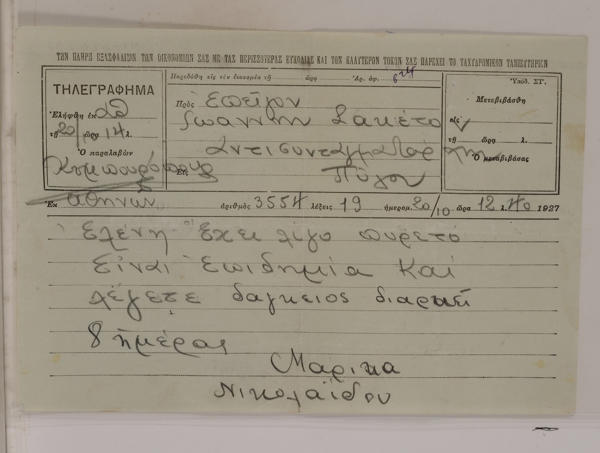 ΤΗΝ ΠΛΗΡΗ ΕΞΑΣΦΑΛΙΣΙΝ ΤΩΝ ΟΙΚΟΝΟΜΙΩΝ ΣΑΣ ΜΕ ΤΑΣ ΠΕΡΙΣΣΟΤΕΡΑΣ ΕΥΚΟΛΙΑΣ ΚΑΙ ΤΟΝ ΚΑΛΥΤΕΡΟΝ ΤΟΚΟΝ ΣΑΣ ΠΑΡΕΧΕΙ ΤΟ ΤΑΧΥΔΡΟΜΙΚΟΝ ΤΑΜΙΕΥΤΗΡΙΟΝ
ΤΗΛΕΓΡΑΦΗΜΑ
Ἐλήφθη ἐκ
τῇ 20 ὥρᾳ 14 λ.
Ὁ παραλαβὼν
Παρεδόθη εἰς τὸν διανομέα τῇ ὥρᾳ Ἀρ. ἀφ.
Πρὸς Ἐπεῖγον
Ἰωάννην Σακέτο
Ἀντισυνταγματάρχην
Εἰς Πύλον
Ὑπόδ. ΣΓ.
Μετεβιβάσθη
εἰς
τῇ ὥρᾳ λ.
Ὁ μεταβιβάσας
Ἐκ Ἀθηνῶν ἀριθμὸς 3554 λέξεις 19 ἡμερομ. 20/10 ὥρα 12 λ. 40 1927
Ἑλένη ἔχει λίγο πυρετό
Εἶναι Ἐπιδημία Καί
λέγετε δαγκειος διαρκεῖ
8 ἡμέρας
Μαρικα
Νικολαΐδου